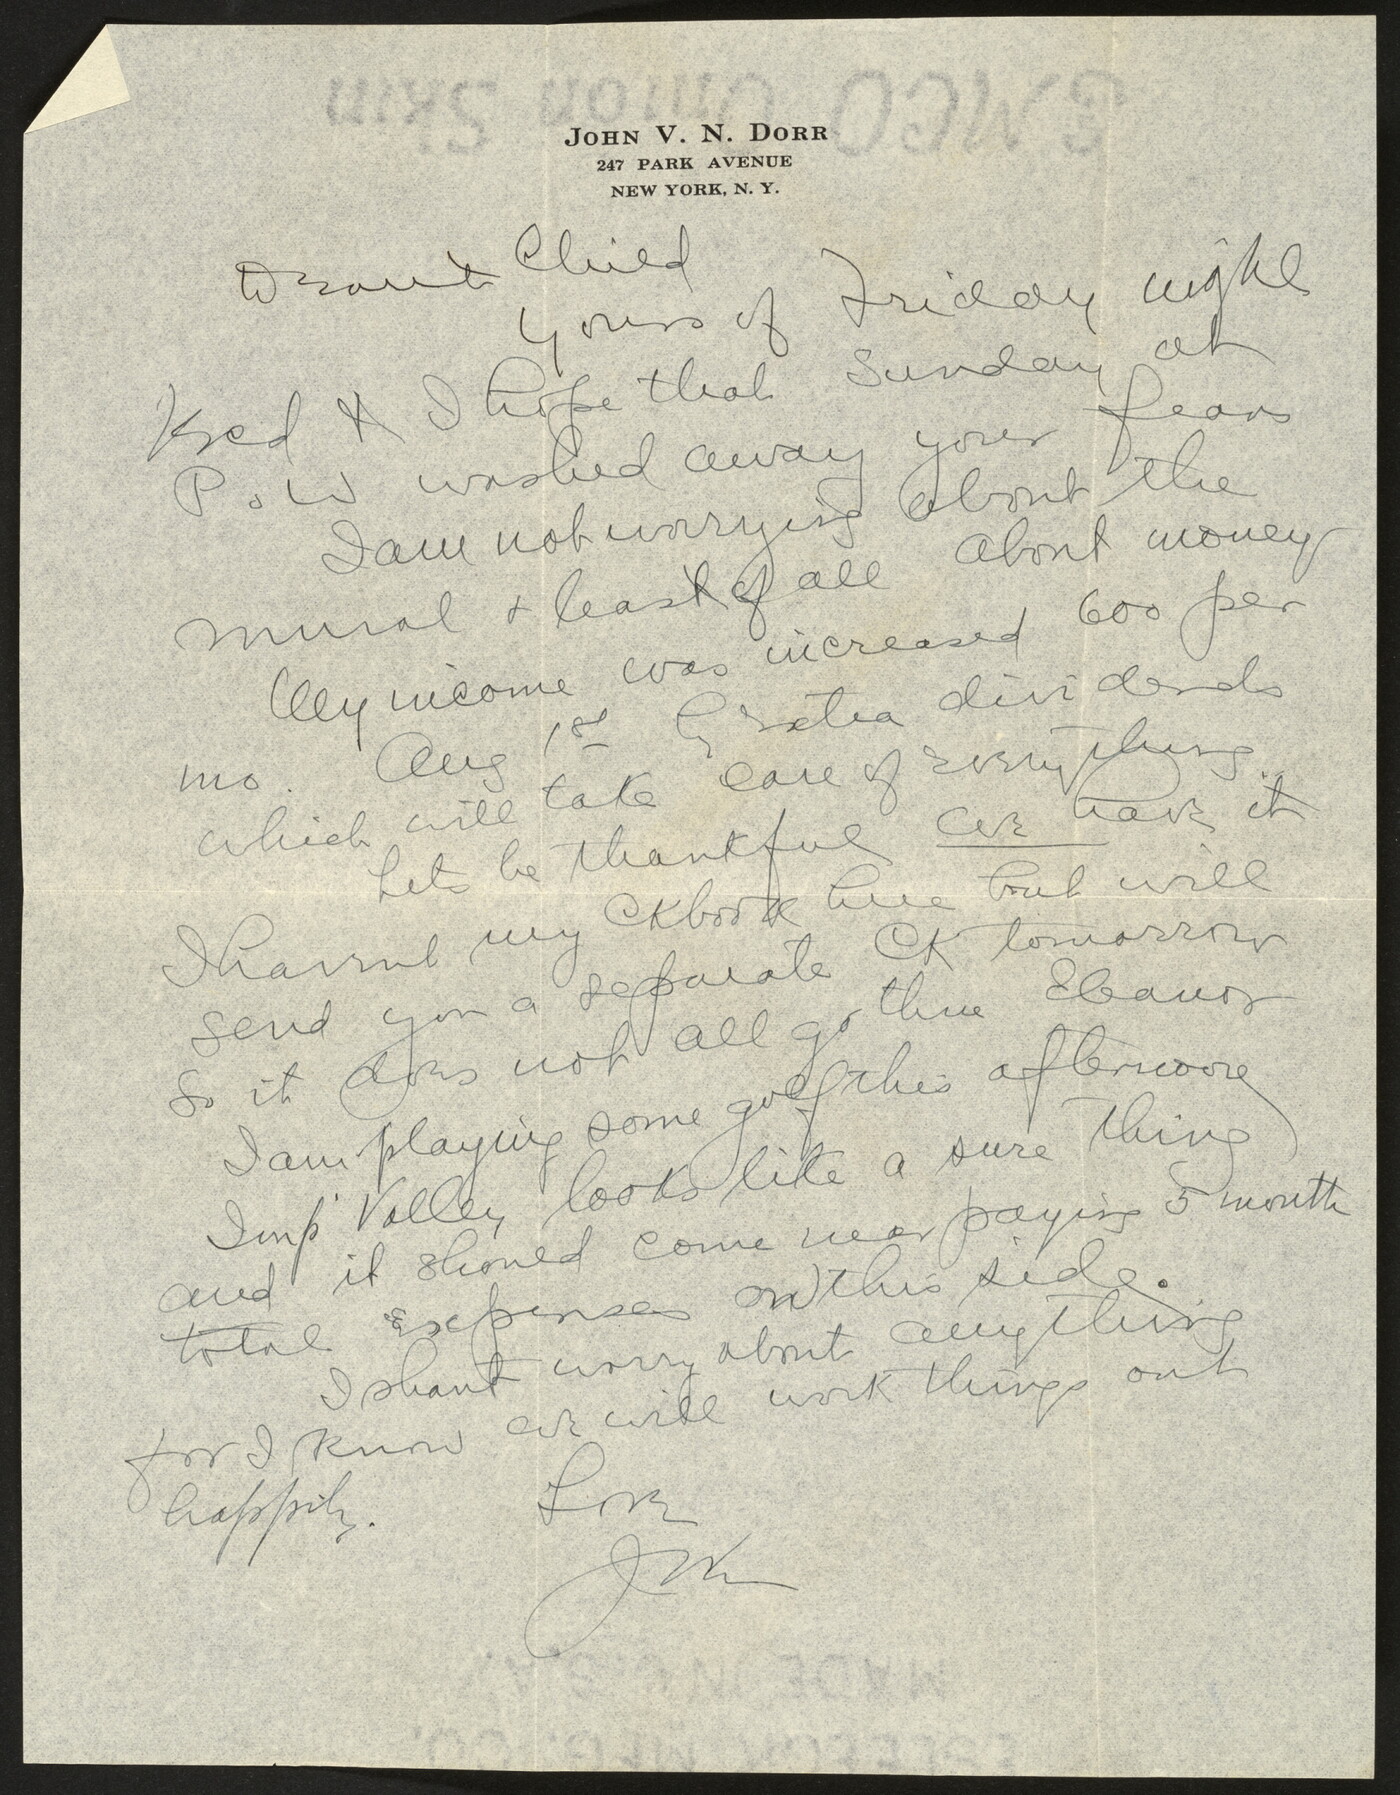 JOHN V. N. DORR
247 PARK AVENUE
NEW YORK, N. Y.
Dearest Child
Yours of Friday night
Rec'd & I hope that Sunday at
P. W washed away your fears
I am not worrying about the
mural + least of all about money
My income was increased 600 per
mo. Aug 1st Extra dividends
which will take care of everything.
Lets be thankful we have it
I havent my Ckbook here but will
send you a separate CK tomorrow
So it does not all go thru Eleanor
I am playing some golf this afternoon
Imp Valley looks like a sure thing
and it should come near paying 5 month
total expenses on this side.
I shant worry about anything
for I know we will work things out
happily.
Love
Jack